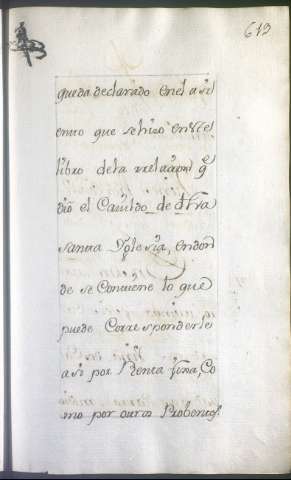 613
queda declarado en el asi
ento que se hizo en este
libro de la rrelazion q̃
dió el Cavildo de dħa
santa Yglesia, en don
de se Conviene lo que
puede Corresponderle
asi por Renta fixa, Co
mo por otros Probentos.